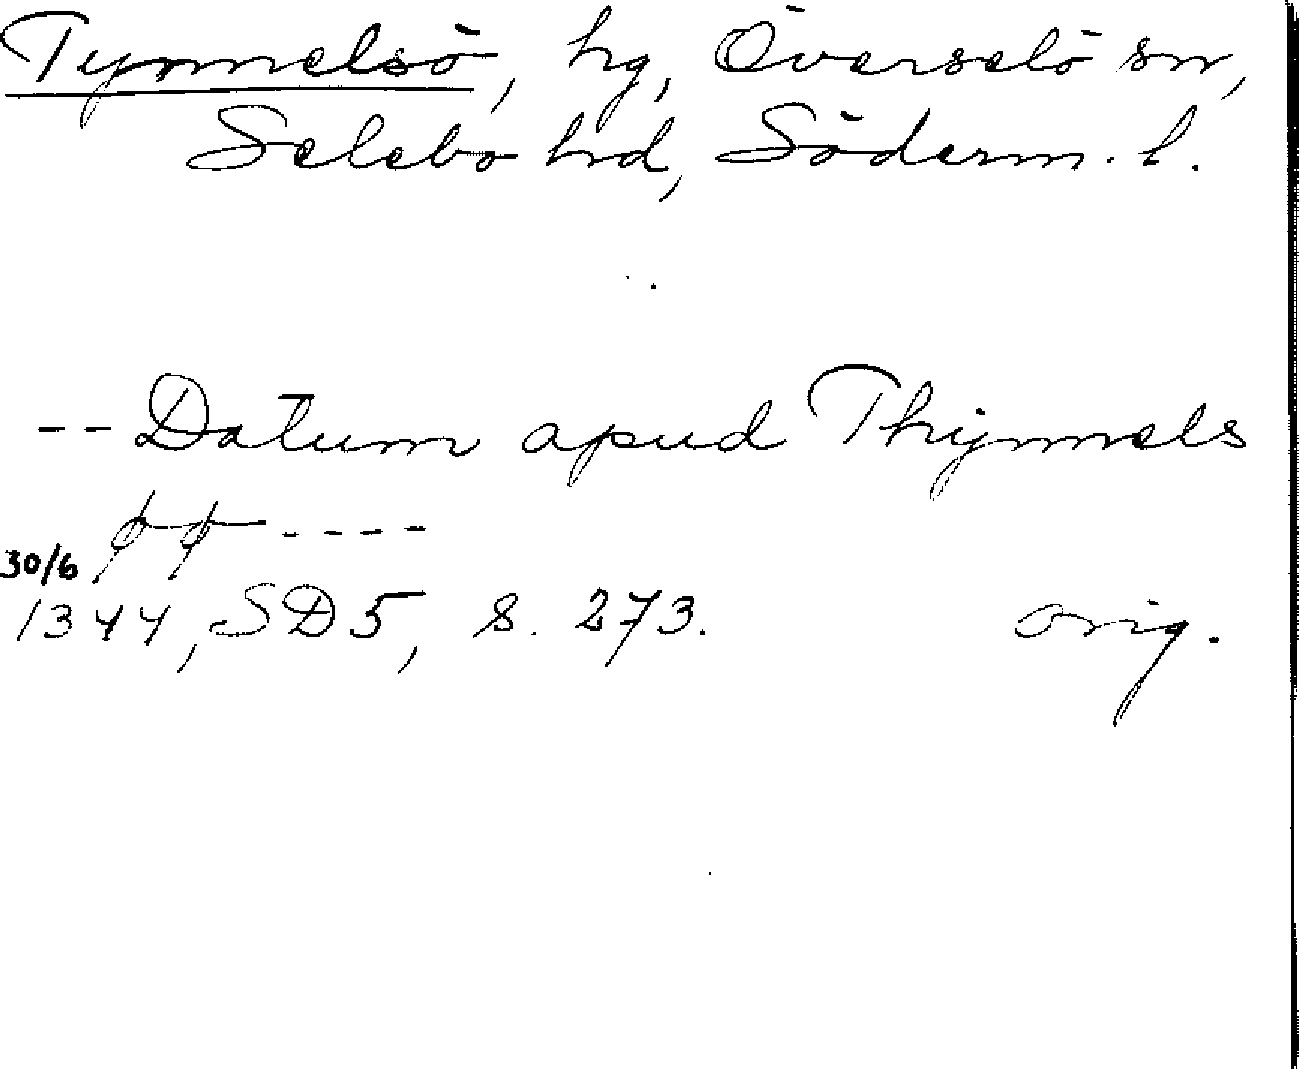 Tynnelsö, hg, Överselö sn,
Selebo hd, Söderm. l.
-- Datum apud Thynnels
øø ----
30/6
1344, SD 5, s. 273. orig.